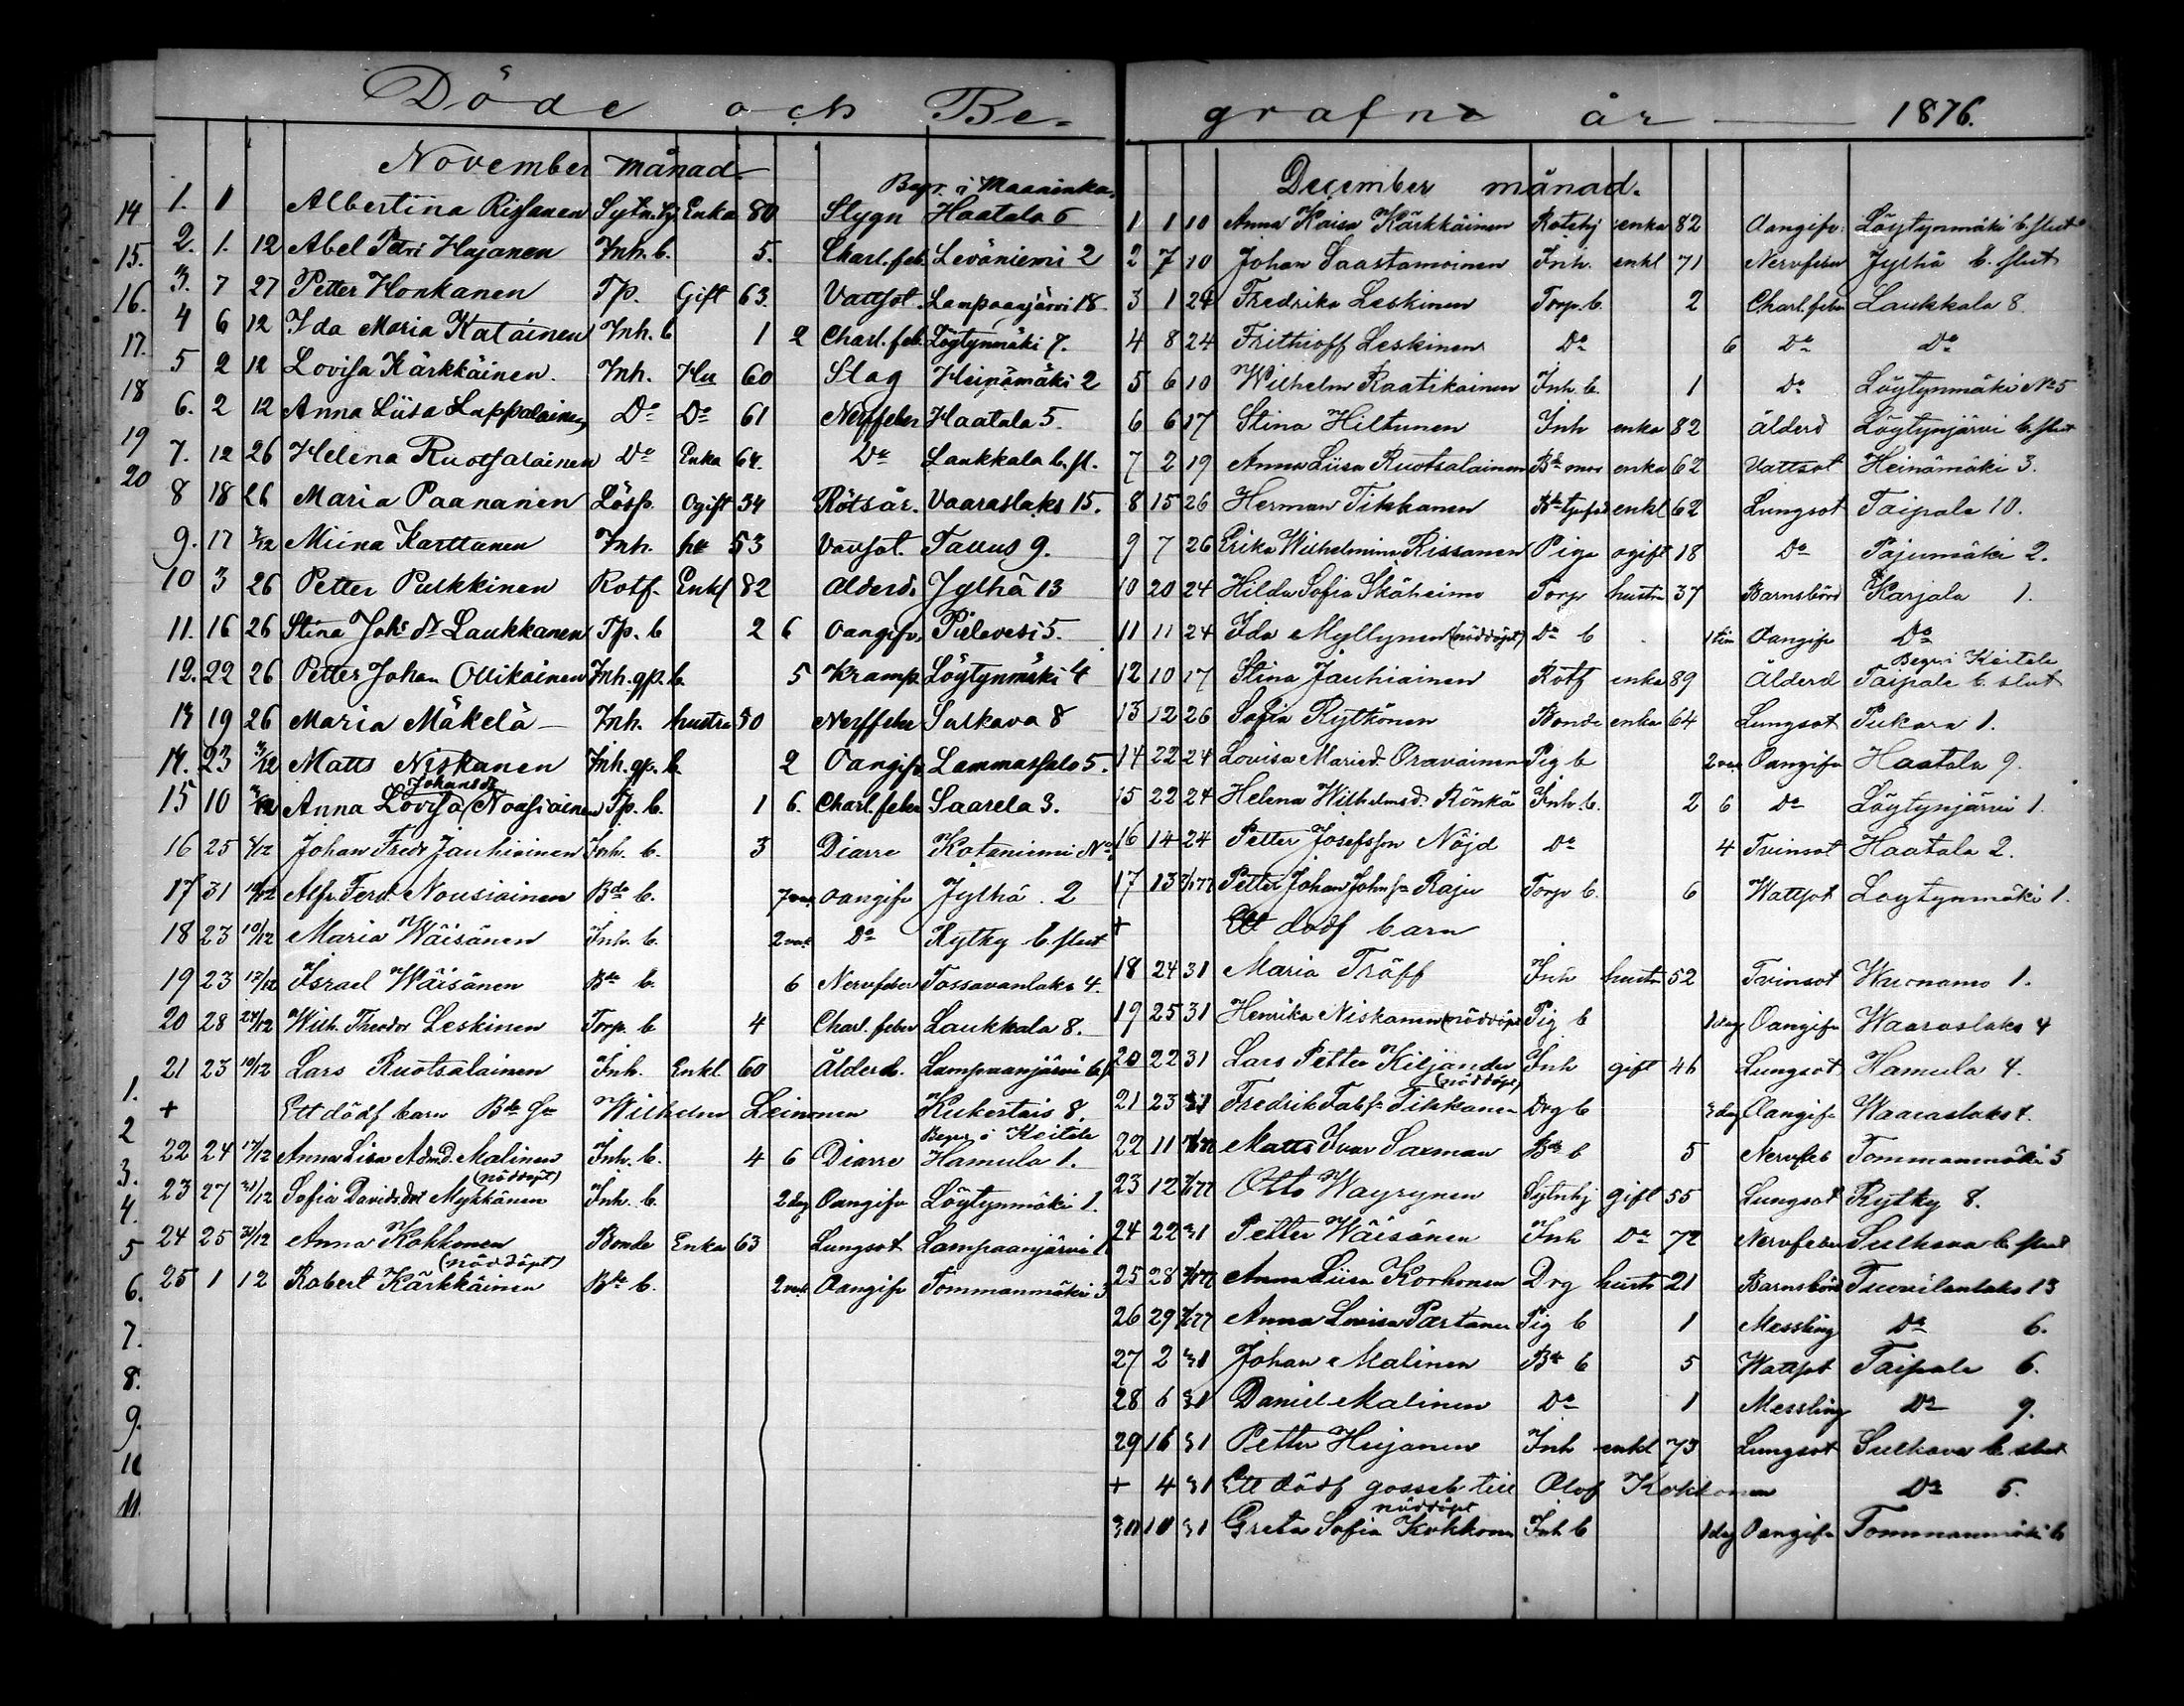 Döde och Be-
November månad
Begr. i Maaninka
14 1. 1 Albertina Rissanen Sytn.hj Enka 80 Slygn Haatala 6
15. 2. 1. 12 Abel Petri Hujanen Inh. b. 5. Charl. feb. Leväniemi 2
16. 3. 7 27 Petter Honkanen Tp. Gift 63. Vattsot. Lampaanjärvi 18
17. 4 6 12 Ida Maria Katainen Inh. b 1 2 Charl. feb. Löytynmäki 7.
18 5 2 12 Lovisa Kärkkäinen. Inh. Hu 60 Slag Heinämäki 2
19 6. 2 12 Anna Liisa Lappalainen Do Do 61 Nerffeber Haatala 5.
20 7. 12 26 Helena Ruotsalainen Do Enka 64. Do Laukkala b. sl.
8 18 26 Maria Paananen Lösp. Ogift 34 Rötsår. Vaaraslaks 15.
9. 17 3/12 Miina Karttunen Inh. hu 53 Vattsot. Tavus 9.
10 3 26 Petter Pulkkinen Rotf. Enkl 82 Alderd. Jylhä 13
11. 16 26 Stina Johs dr Laukkanen Tp. b 2 6 Oangifv. Pielevesi 5.
12. 22 26 Petter Johan Ollikainen Inh. gp. b. 5 Kramp. Löytynmäki 4
13 19 26 Maria Mäkelä Inh. hustru 50 Nerffeber Sulkava 8
14. 23 3/12 Matts Niskanen Inh. gp. b. 2 Oangifv. Lammassalo 5.
Johansdr
15 10 Anna Lovisa Nousiainen Tp. b. 1 6. Charl. feber Saarela 3.
16 25 /12 Johan Fredr Jauhiainen Inh. b. 3 Diarre Kotaniemi No
17 31 10/12 Alfr. Ferd. Nousiainen Bde b. 7 Oangifv Jylhä. 2
18 23 10/12 Maria Wäisänen Inh. b. 2 Do Rytky b. slut
19 23 17/12 Israel Wäisänen Bde b. 6 Nervfeber Tossavanlaks 4.
20 28 24/12 Wilh. Theodor Leskinen Torp. b 4 Charl. feber Laukkala 8.
21 23 10/12 Lars Ruotsalainen Inh. Enkl. 60 Ålderd. Lampaanjärvi b. s
1. + Ett dödf barn Bde Wilhelm Leinonen Kukertais 8.
2 Begr. i Keitele
22 24 17/12 Anna Lisa Admd. Malinen Inh. b. 4 6 Diarre Hamula 1.
3. (nöddöpt)
23 27 31/12 Sofia Davidsdotr Mykkänen Inh. b. 2 dag Oangifv Löytynmäki 1.
4. 24 25 31/12 Anna Kokkonen Bonde Enka 63 Lungsot Lampaanjärvi
5 (nöddöpt)
6. 25 1 12 Robert Kärkkäinen Bde b. 2 Oangifv Tommanmäki 3
7.
8.
9.
10
11.
grafne år 1876.
December månad.
1 1 10 Anna Kaisa Kärkkäinen Rotehj enka 82 Oangifv. Löytynmäki b. slut
2 7 10 Johan Saastamoinen Inh. enkl 71 Nervfeber Jylhä b. slut
3 1 24 Fredrika Leskinen Torp. b. 2 Charl. feber Laukkala 8.
4 8 24 Frithioff Leskinen Do 6 Do Do
5 6 10 Wilhelm Raatikainen Inh. b. 1 Do Löytynmäki No 5
6 6 17 Stina Hiltunen Inh enka 82 Älderd Löytynjärvi b. slut
7 2 19 Anna Liisa Ruotsalainen Bde mor enka 62 Vattsot Heinämäki 3.
8 15 26 Herman Tikkanen enkl 62 Lungsot Taipale 10.
9 7 26 Erika Wilhelmina Rissanen Piga ogift 18 Do Pajumäki 2.
10 20 24 Hilda Sofia Skäheimo Torp hustru 37 Barnsbörd Karjala 1.
11 11 24 Ida Myllynen (nöddöpt) Do b 1 tim Oangifv Do
Begr. i Keitele
12 10 17 Stina Jauhiainen Rotf enka 89 Älderd Taipale b. slut
13 12 26 Sofia Rytkönen Bonde enka 64 Lungsot Pukara 1.
14 22 24 Lovisa Maried. Oravainen Pig b 2 Oangifv Haatala 9.
15 22 24 Helena Wilhelmsd. Rönkä Inh b. 2 6 Do Löytynjärvi 1.
16 14 24 Petter Josefsson Nöjd Do 4 Tvinsot Haatala 2.
17 13 7/1 77 Petter Johan Johns sn Raju Torp b. 6 Wattsot Löytynmäki 1.
+ Ett dödf barn
18 24 31 Maria Träff Inh hustru 52 Tvinsot Wuonamo 1.
19 25 31 Henrika Niskanen (nöddöpt Pig b 1 dag Oangifv Waaraslaks 4
20 22 31 Lars Petter Kiljander Inh gift 46 Lungsot Hamula 4.
(nöddöpt)
21 23 31 Fredrik Tikkanen Drg b 3 dag Oangifv Waaraslaks 4.
22 11 Matts Ivar Saxman Bde b 5 Nervfeb Tommanmäki 5
23 12 7/1 77 Otto Wäyrynen Sytnhj gift 55 Lungsot Rytky 8.
24 22 31 Petter Wäisänen Inh Do 72 Nervfeber Sulkava b. slut
25 28 7/1 77 Anna Liisa Korhonen Drg hustr 21 Barnsbörd Tuovilanlaks 13
26 29 7/1 77 Anna Lovisa Partanen Pig b 1 Messling Do 6.
27 2 31 Johan Malinen Bde b 5 Wattsot Taipale 6.
28 6 31 Daniel Malinen Do 1 Messling Do 9.
29 16 31 Petter Hujanen Inh enkl 73 Lungsot Sulkava b. slut
+ 4 31 Ett dödf gosseb. till Olof Kokkonen Do 5.
nöddöpt
30 10 31 Greta Sofia Kokkonen Inh b 1 dag Oangifv Tommanmäki 6